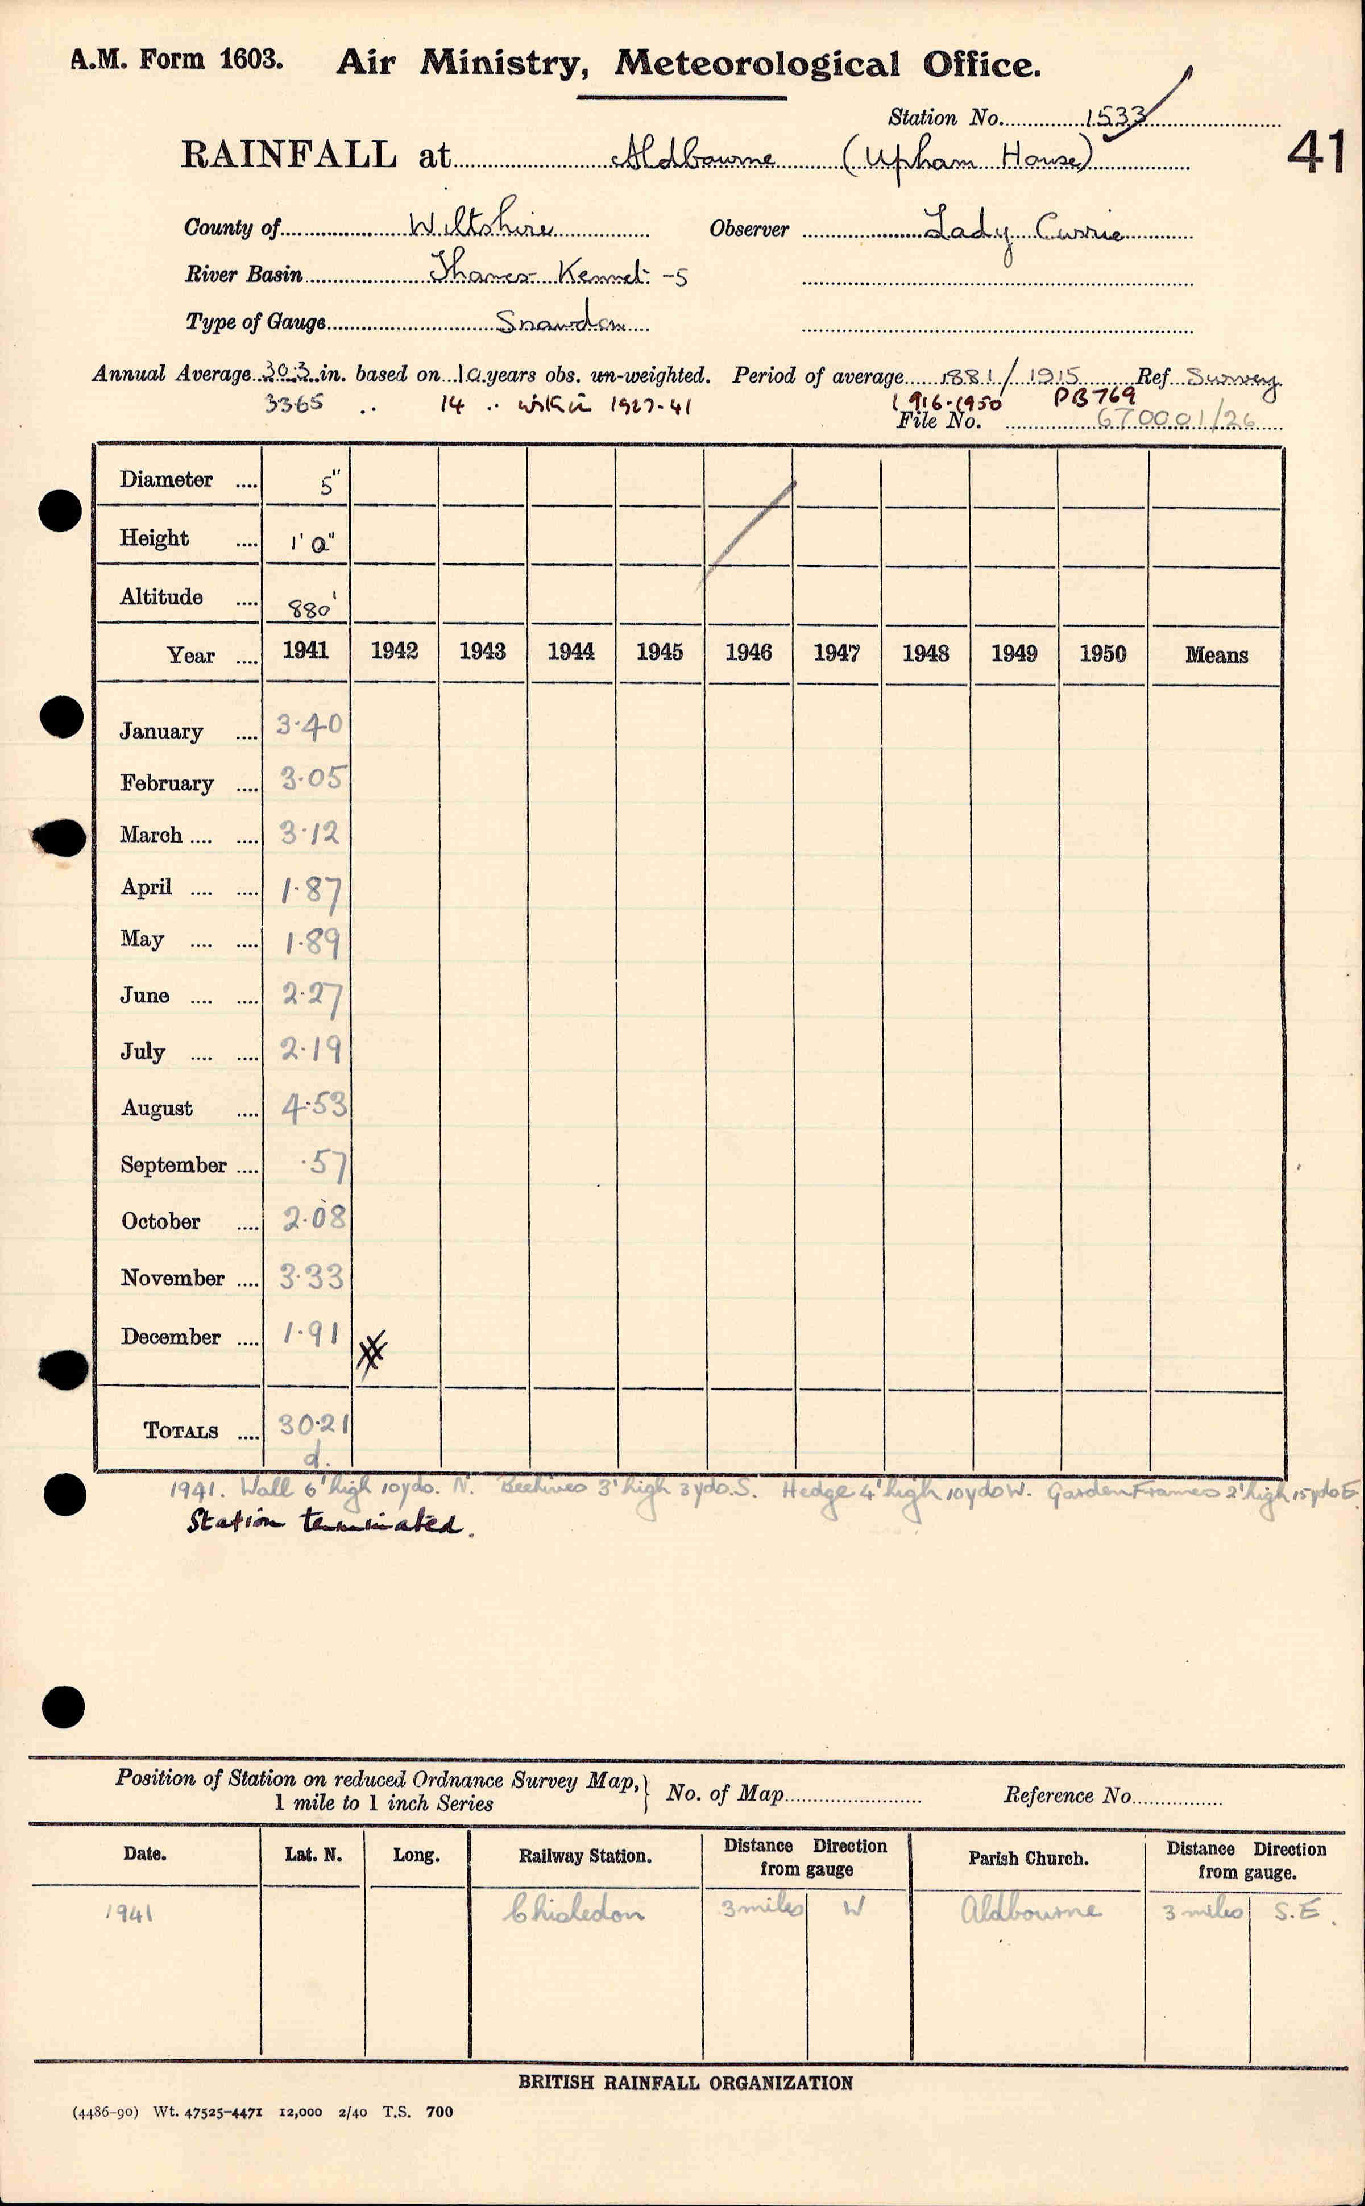 A.M. Form 1603. Air Ministry, Meteorological Office.
Station No. 1533
RAINFALL at Aldbourne (Upham House) 41
County of Wiltshire Observer Lady Currie
River Basin Thames-Kennet -S
Type of Gauge Snowdon
Annual Average 30.3 in. based on 10 years obs. un-weighted. Period of average 1881/1915 Ref Survey
3365 .. 14 .. 1927-41 1916-1950 PB769
File No. 670001/26
Diameter .... 5"
Height .... 1'0"
Altitude .... 880'
Year .... 1941 1942 1943 1944 1945 1946 1947 1948 1949 1950 Means
January .... 3.40
February .... 3.05
March .... .... 3.12
April .... .... 1.87
May .... .... 1.89
June .... .... 2.27
July .... .... 2.19
August .... 4.53
September .... .57
October .... 2.08
November .... 3.33
December .... 1.91
TOTALS .... 30.21
d.
1941. Wall 6' high 10yds. N. Beehives 3' high 3yds. S. Hedge 4' high 10yds W. Garden Frames 2' high 15yds E.
Station terminated.
Position of Station on reduced Ordnance Survey Map, } No. of Map Reference No.
1 mile to 1 inch Series
Date. Lat. N. Long. Railway Station. Distance Direction from gauge Parish Church. Distance Direction from gauge.
1941 Chisledon 3 miles W Aldbourne 3 miles S.E.
BRITISH RAINFALL ORGANIZATION
(4486-90) Wt. 47525-4471 12,000 2/40 T.S. 700